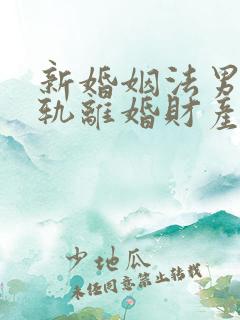 新婚姻法男
轨離婚財產
少地瓜
未经同意禁止转载